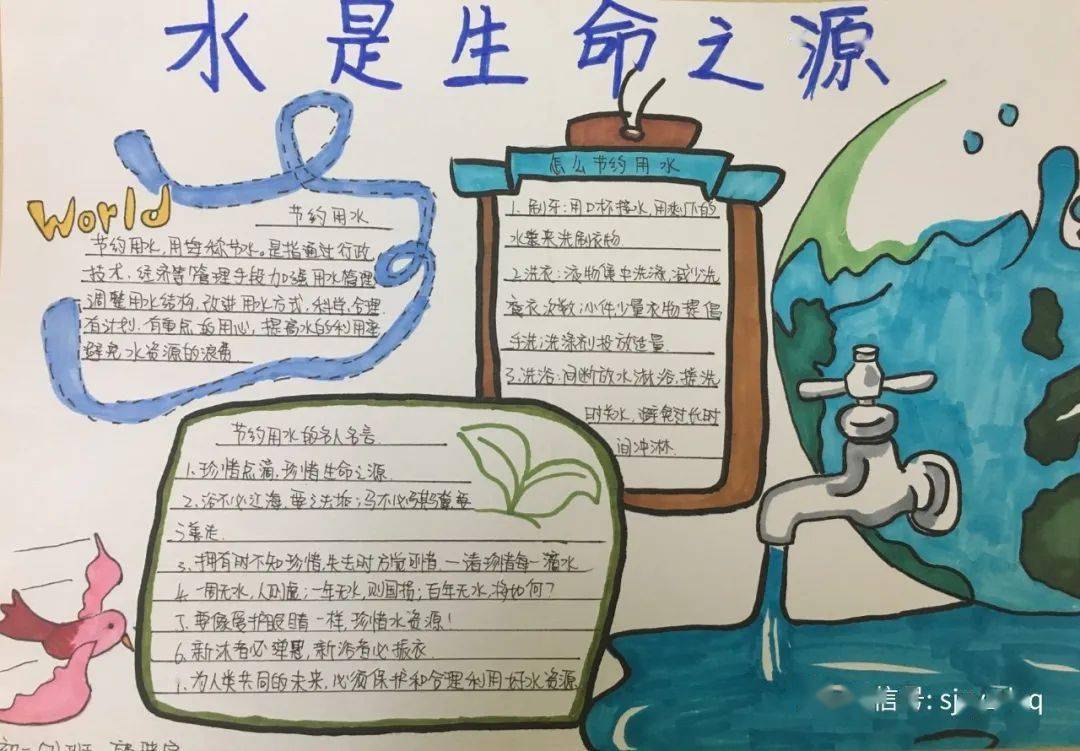 水是生命之源
World
节约用水
节约用水,用每称节水。是指通过行政
技术、经济等管理手段加强用水管理
调整用水结构,改进用水方式,科学、合理
有计划、有重点的用心,提高水的利用率
避免水资源的浪费
怎么节约用水
1.刷牙:用口杯接水,用剩下的
水浆来洗刷衣物
2.洗衣:衣物集中洗涤,减少洗
衣次数;小件少量衣物提倡
手洗;洗涤剂投放适量
3.洗浴:间断放水淋浴,搓洗
时关水,避免过长时
间冲淋
节约用水的名人名言
1.珍惜点滴,珍惜生命之源
2.浴不必江海,要之去垢;马不必骐骥,要
之善走
3.拥有时不知珍惜,失去时方觉可惜,一请珍惜每一滴水
4.一周无水,人则虚;一年无水,则国损;百年无水,将如何?
5.要像爱护眼睛一样,珍惜水资源!
6.新沐者必弹冠,新浴者必振衣
7.为人类共同的未来,必须保护和合理利用好水资源
信号: sj
q